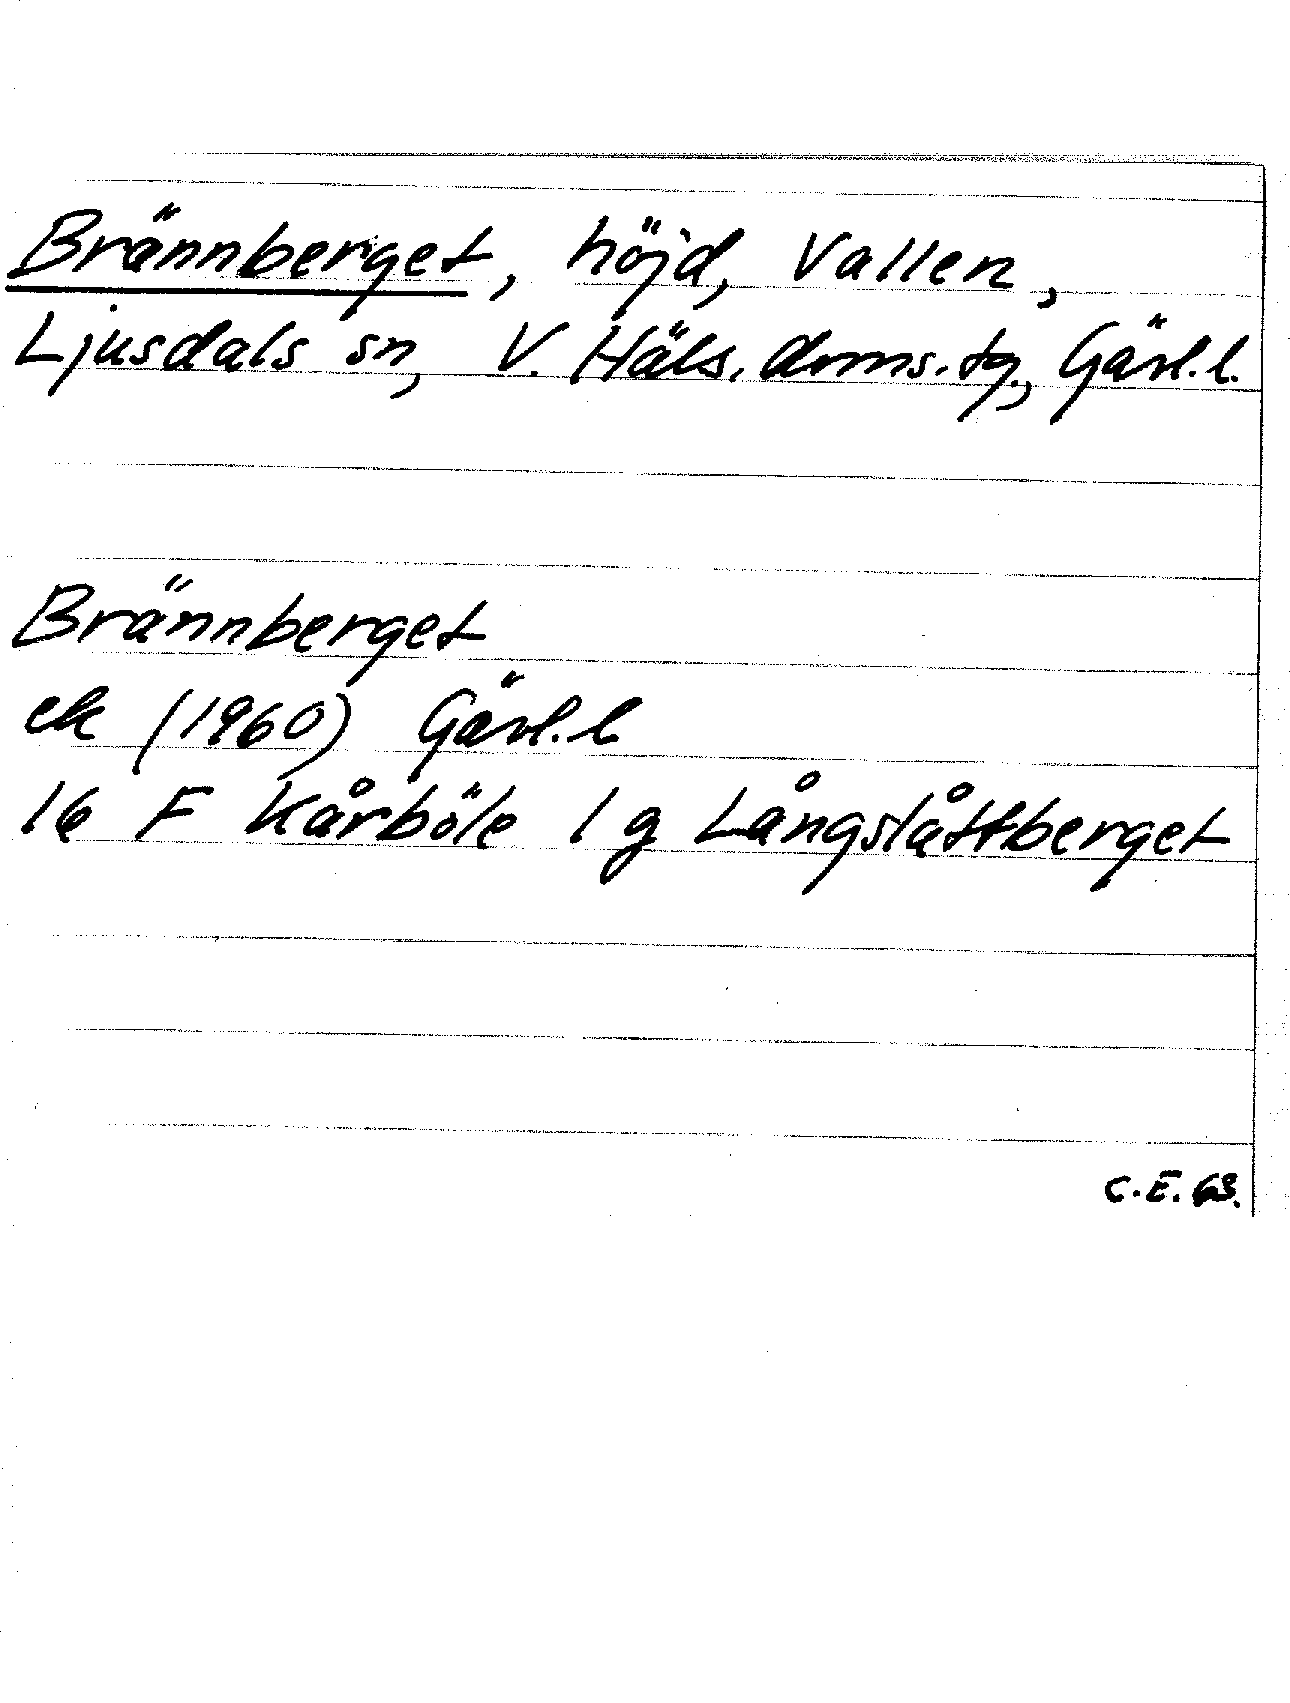 Brännberget, höjd, Vallen,
Ljusdals sn, V. Häls. doms.tg., Gävl.l.
Brännberget
ek (1960) Gävl.l
16 F Kårböle 1 g Långslåttberget
C.E. 63.